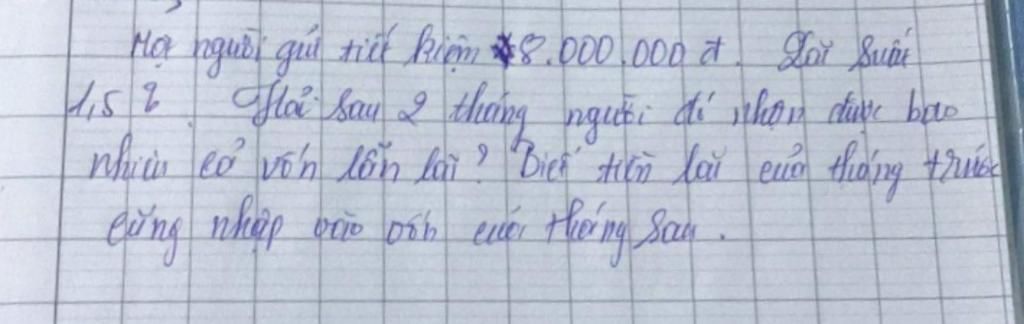 Một người gửi tiết kiệm 8.000.000 đ. Lãi suất
1,5 %. Hỏi sau 2 tháng người đó nhận được bao
nhiêu cả vốn lẫn lãi? Biết tiền lãi của tháng trước
cũng nhập vào vốn của tháng sau.